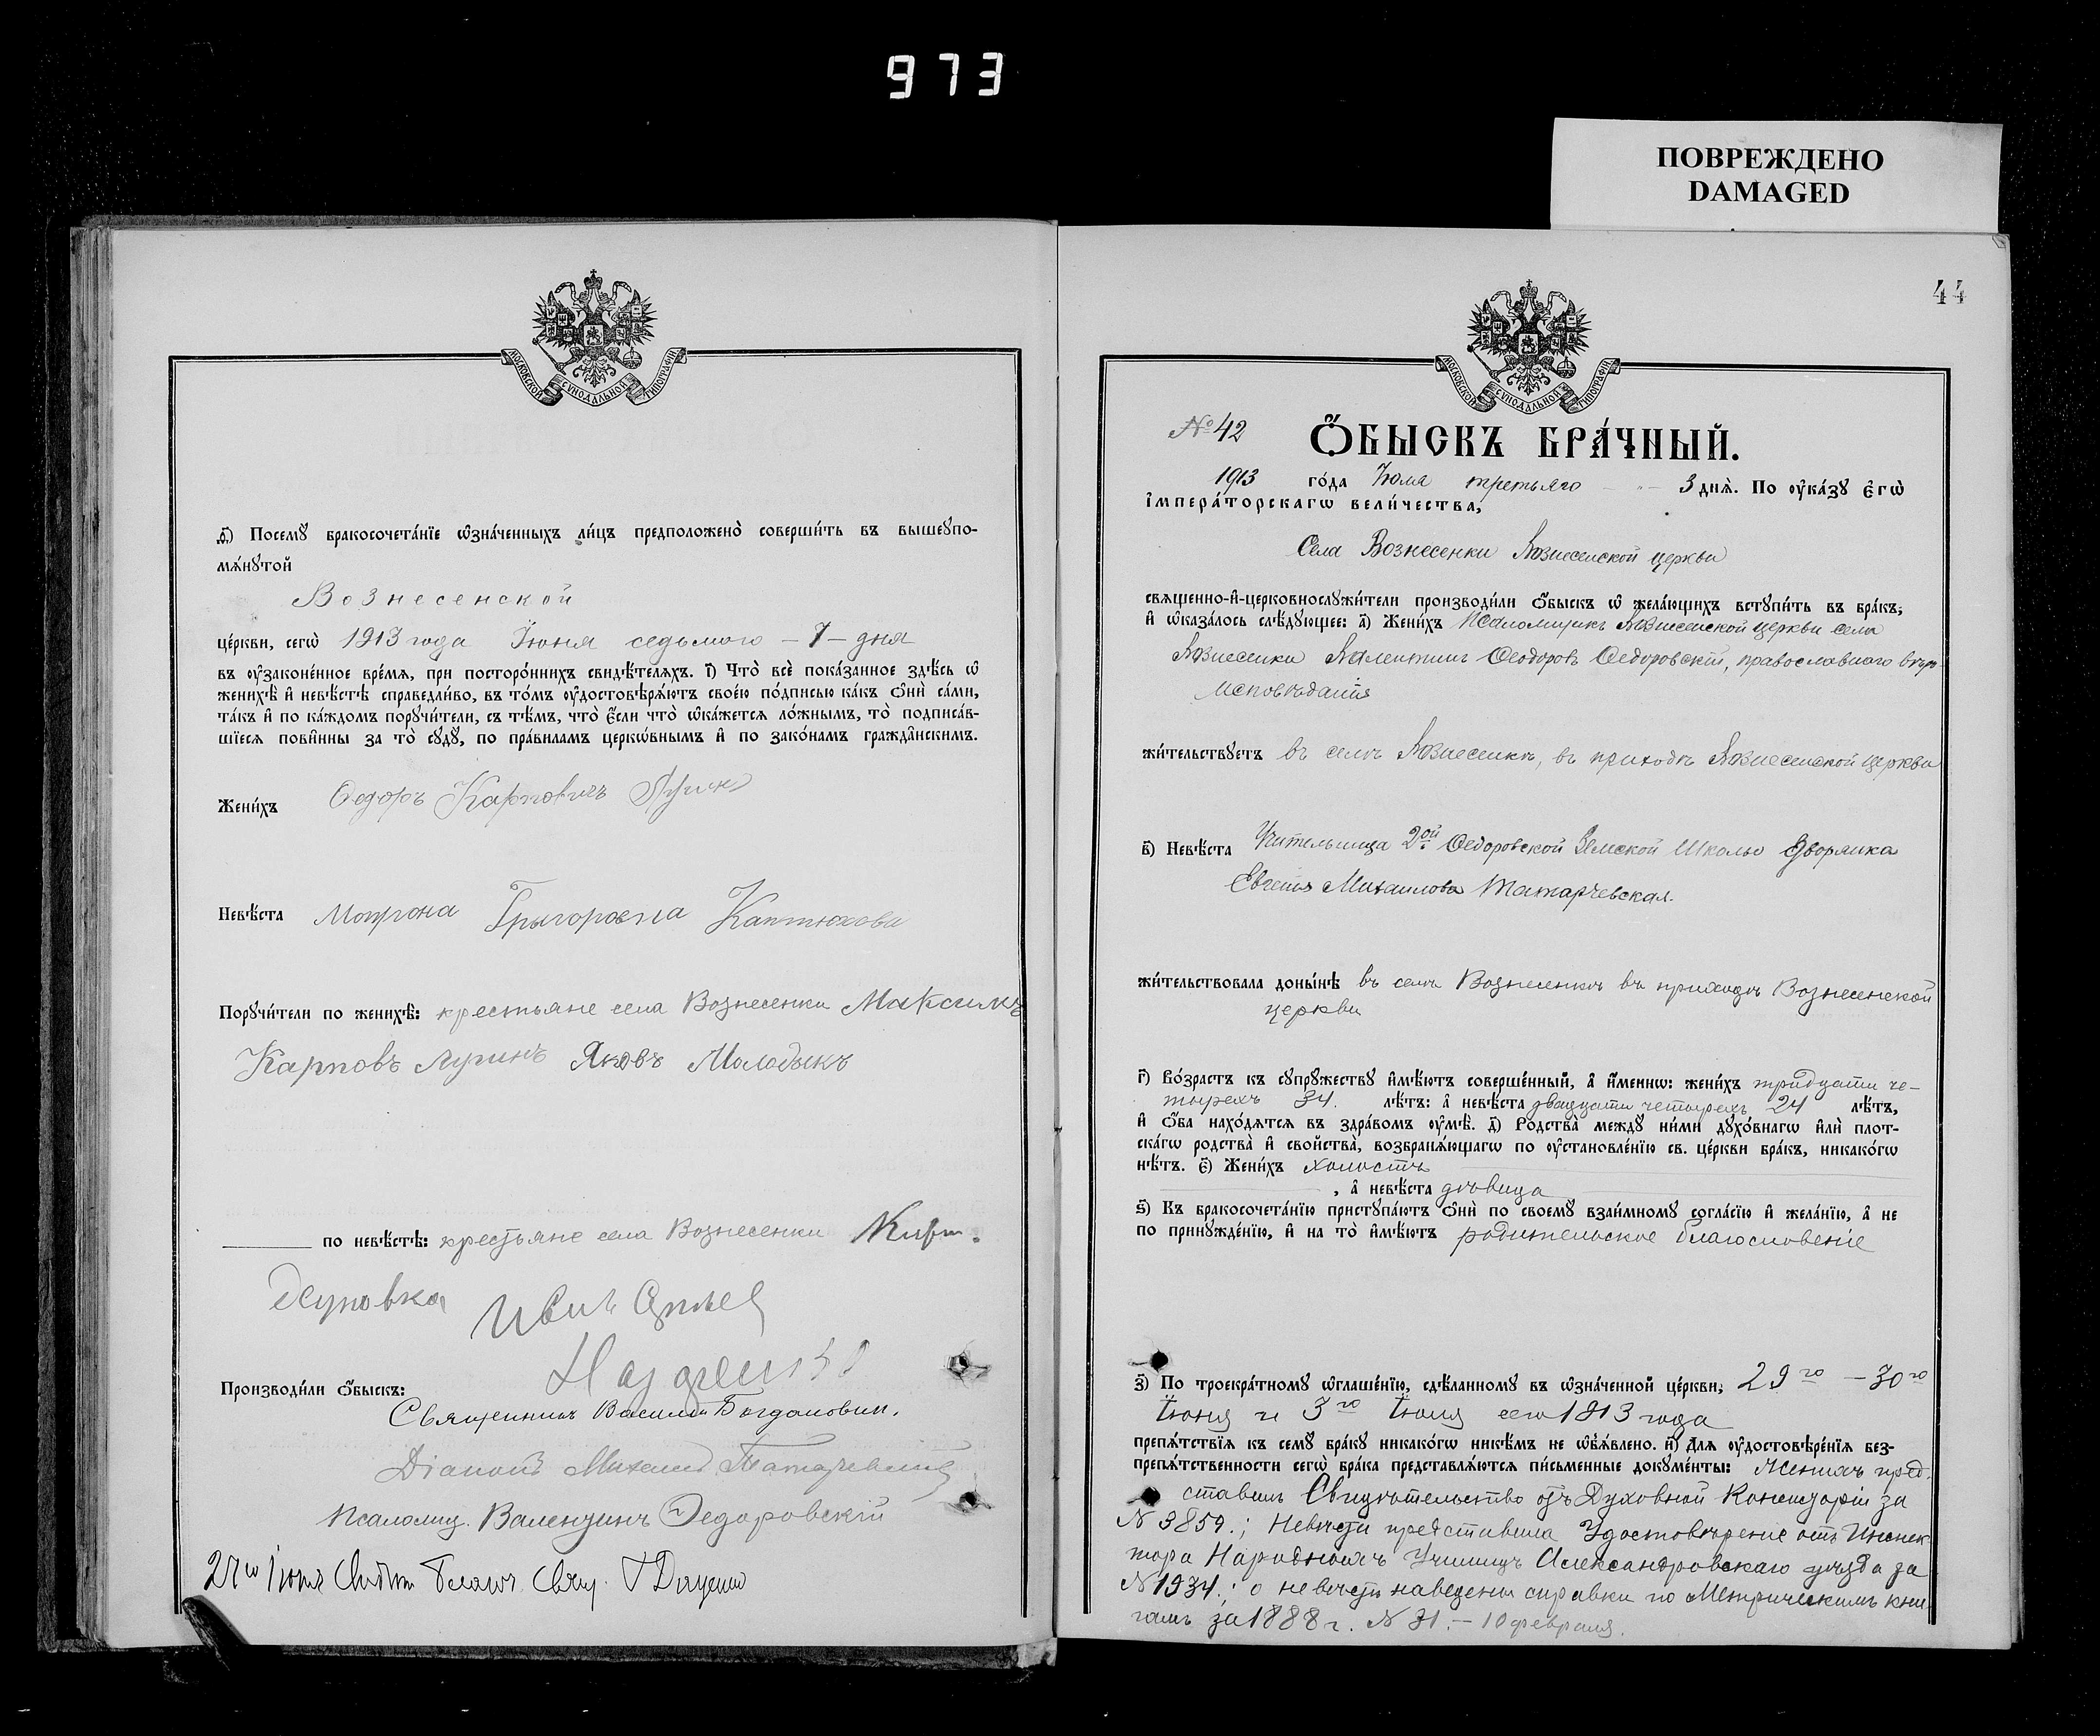 973
ПОВРЕЖДЕНО
DAMAGED
МОСКОВСКОЙ СѴНОДАЛЬНОЙ ТИПОГРАФІИ
ѳ҃) Посемꙋ бракосочета́нїе ѡ҆зна́ченныхъ ли́цъ предположено̀ соверши́ть въ вышеꙋпо-
мѧ́нꙋтой
Вознесенской
це́ркви, сегѡ̀ 1913 года Іюня седьмого – 7 – дня
въ ᲂу҆зако́ненное вре́мѧ, при посторо́ннихъ свидѣ́телѧхъ. і҃) Что̀ всѐ пока́занное здѣ́сь ѡ҆
женихѣ̀ и҆ невѣ́стѣ справедли́во, въ то́мъ ᲂу҆достовѣрѧ́ютъ свое́ю по́дписью ка́къ ѻ҆нѝ са́ми,
та́къ и҆ по ка́ждомъ порꙋчи́тели, съ тѣ́мъ, что̀ є҆́сли что̀ ѡ҆ка́жетсѧ ло́жнымъ, то̀ подписа́в-
шїесѧ пови́нны за то̀ сꙋдꙋ̀, по пра́виламъ церко́внымъ и҆ по зако́намъ гражда̑нскимъ.
Жени́хъ Ѳедоръ Карповичъ
Невѣ́ста Мотрона Григоровна Каптюхова
Порꙋчи́тели по женихѣ̀: крестьяне села Вознесенки Максимъ
Карповъ Лугинъ Яковъ Молодыкъ
по невѣ́стѣ: крестьяне села Вознесенки
Иванъ
Производи́ли ѻ҆́быскъ:
Священникъ Василій Богдановичъ.
Діаконъ Михаилъ Татарчевскій
Псаломщ. Валентинъ Ѳедоровскій
44
МОСКОВСКОЙ СѴНОДАЛЬНОЙ ТИПОГРАФІИ
№ 42 Ѻ҆́БЫСКЪ БРА́ЧНЫЙ.
1913 го́да Іюля третьяго – 3 днѧ̀. По ᲂу҆ка́зꙋ є҆гѡ̀
і҆мпера́торскагѡ вели́чества,
Села Вознесенки Вознесенской церкви
свѧще́нно-и҆-церковнослꙋжи́тели производи́ли ѻ҆́быскъ ѡ҆ жела́ющихъ встꙋпи́ть въ бра́къ,
и҆ ѡ҆каза́лось слѣ́дꙋющее: а҃) Жени́хъ Псаломщикъ Вознесенской церкви села
Вознесенки Валентинъ Ѳеодоровъ Ѳедоровскій, православнаго вѣро
исповѣданія
жи́тельствꙋетъ въ селѣ Вознесенкѣ, въ приходѣ Вознесенской церкви
в҃) Невѣ́ста Учительница 2ой Ѳедоровской Земской Школы Дворянка
Евгенія Михаилова Татарчевская.
жи́тельствовала доны́нѣ въ селѣ Вознесенкѣ въ приходѣ Вознесенской
церкви
г҃) Во́зрастъ къ сꙋпрꙋ́жествꙋ и҆мѣ́ютъ соверше́нный, а҆ и҆́меннѡ: жени́хъ тридцати че-
тырехъ 34. лѣ́тъ: а҆ невѣ́ста двадцати четырехъ 24 лѣ́тъ,
и҆ ѻ҆́ба нахо́дѧтсѧ въ здра́вомъ ᲂу҆мѣ̀. д҃) Родства̀ междꙋ ни́ми дꙋхо́внагѡ и҆лѝ плот-
ска́гѡ родства̀ и҆ сво́йства̀, возбранѧ́ющагѡ по ᲂу҆становле́нїю св. це́ркви бра́къ, никако́гѡ
нѣ́тъ. є҃) Жени́хъ холостъ
, а҆ невѣ́ста дѣвица
ѕ҃) Къ бракосочета́нїю пристꙋпа́ютъ ѻ҆нѝ по своемꙋ̀ взаи́мномꙋ согла́сїю и҆ жела́нїю, а҆ не
по принꙋжде́нїю, и҆ на то̀ и҆мѣ́ютъ родительское благословеніе
з҃) По троекра́тномꙋ ѡ҆глаше́нїю, сдѣ́ланномꙋ въ ѡ҆зна́ченной це́ркви, 29го – 30го
Іюня и 3го Іюля сего 1913 года
препѧ́тствїѧ къ семꙋ̀ бра́кꙋ никако́гѡ никѣ́мъ не ѡ҆б̾ѧ́влено. и҃) Длѧ ᲂу҆достовѣре́нїѧ без-
препѧ́тственности сегѡ̀ бра́ка представлѧ́ютсѧ пи́сьменные докꙋме́нты: Женихъ пред-
ставилъ Свидѣтельство отъ Духовной Консисторіи за
№ 3859.; Невѣста представила Удостовѣреніе отъ Инспек-
тора Народныхъ Училищъ Александровскаго уѣзда за
№ 1934.; о невѣстѣ наведены справки по Метрическимъ кни-
гамъ за 1888 г. № 31. – 10 февраля.